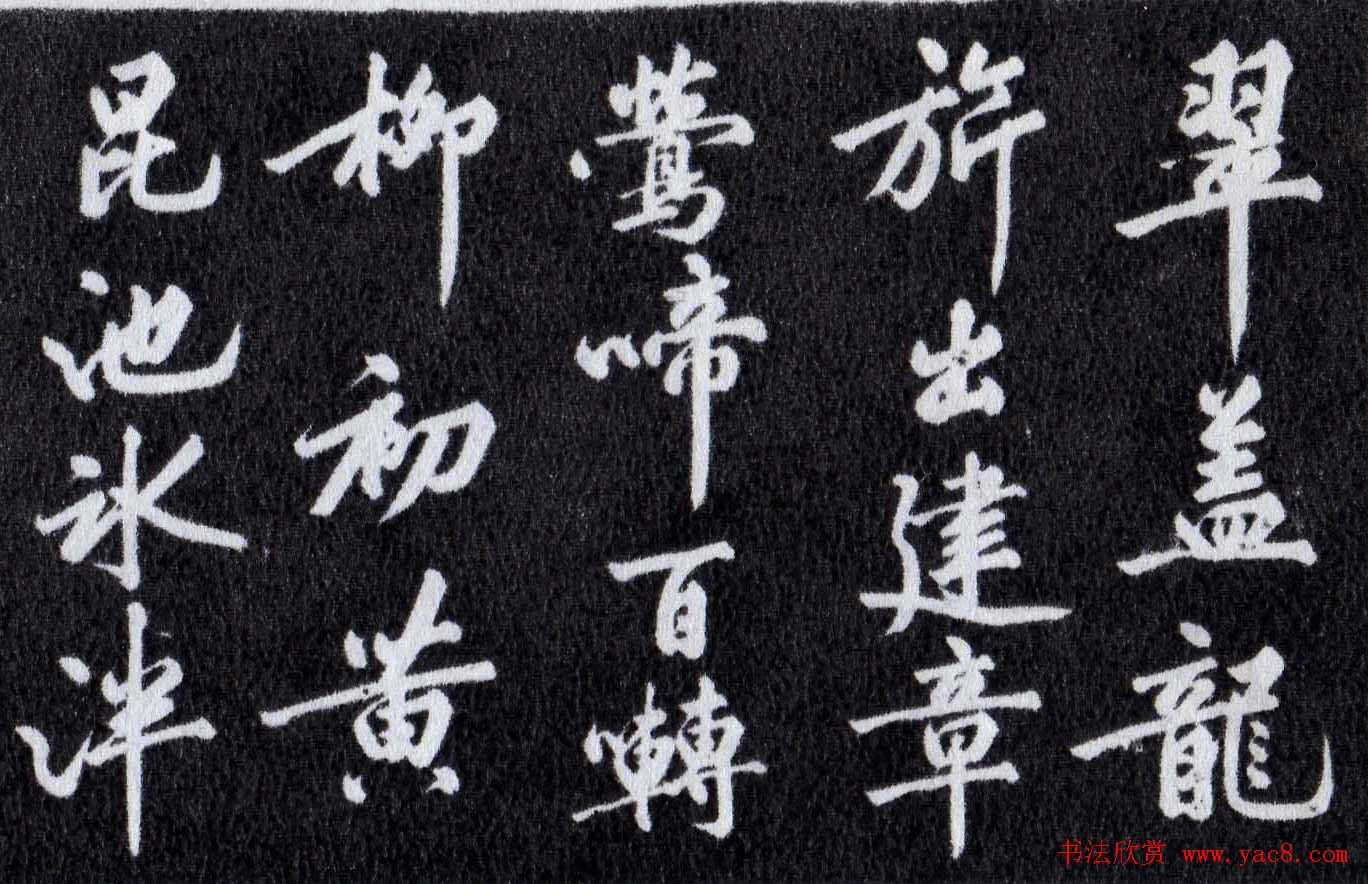 翠盖龍
旂出建章
鶯啼百囀
柳初黄
昆池冰泮
书法欣赏 www.yac8.com